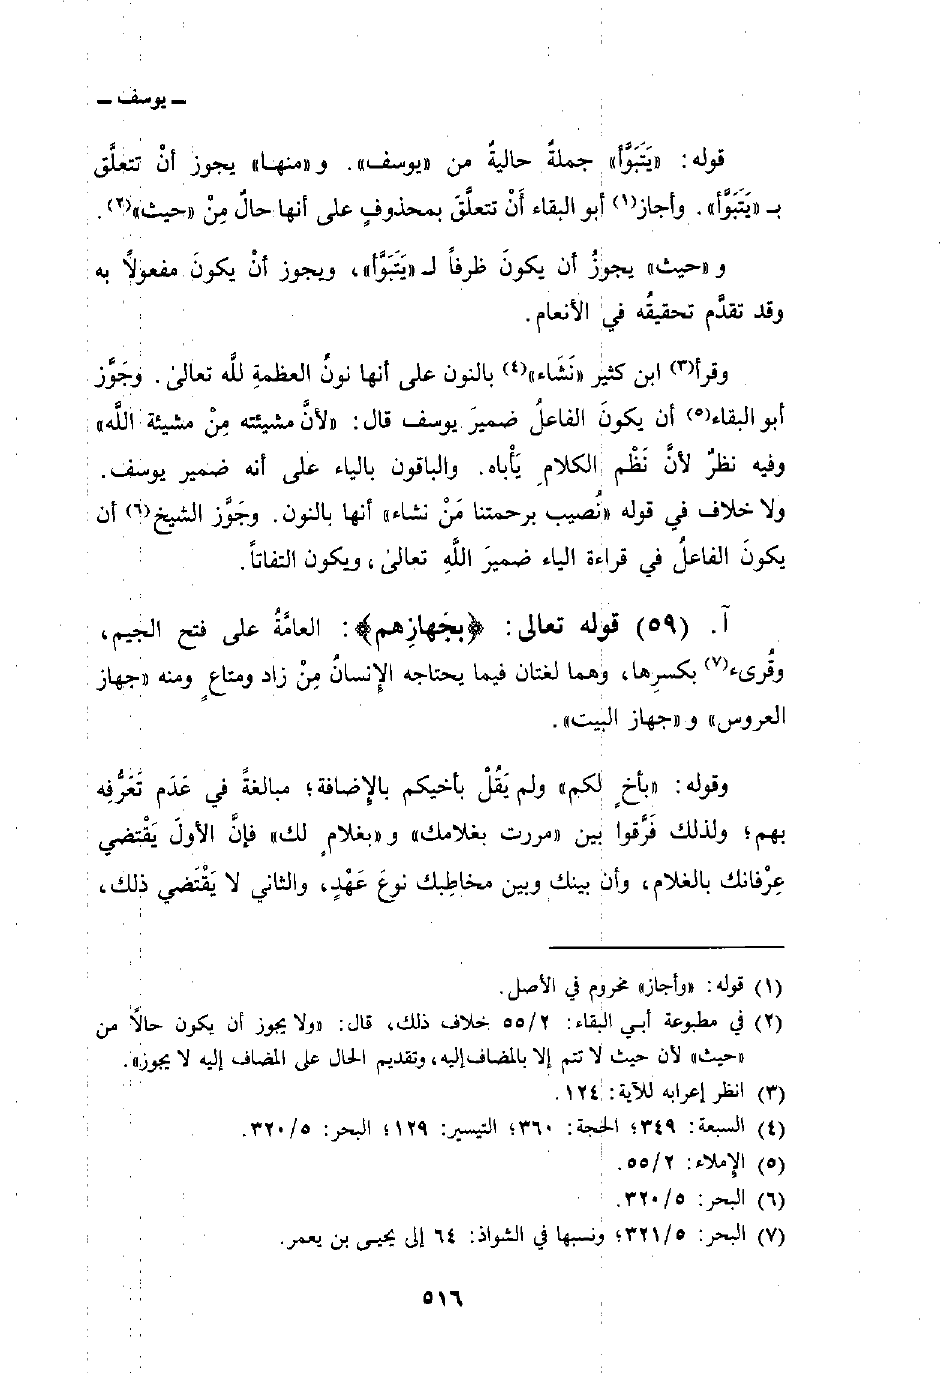 ـ يوسف ـ
قوله: «يَتَبَوَّأ» جملةٌ حاليةٌ من «يوسف». و «منهـا» يجوز أنْ تتعلَّق
بـ «يَتَبَوَّأ». وأجاز(١) أبو البقاء أَنْ تتعلَّقَ بمحذوفٍ على أنها حالٌ مِنْ «حيث»(٢).
و «حيث» يجوزُ أن يكونَ ظرفاً لـ «يَتَبَوَّأ»، ويجوز أنْ يكونَ مفعولًا به
وقد تقدَّم تحقيقُه في الأنعام.
وقرأ(٣) ابن كثير «نَشَاء»(٤) بالنون على أنها نونُ العظمةِ للَّه تعالىٰ. وجَوَّز
أبو البقاء(٥) أن يكونَ الفاعلُ ضميرَ يوسف قال: «لأنَّ مشيئته مِنْ مشيئة اللَّه»
وفيه نظرٌ لأنَّ نَظْم الكلامِ يَأْباه. والباقون بالياء على أنه ضمير يوسف.
ولا خلاف في قوله «نُصيب برحمتنا مَنْ نشاء» أنها بالنون. وجَوَّز الشيخ(٦) أن
يكونَ الفاعلُ في قراءة الياء ضميرَ اللَّهِ تعالىٰ، ويكون التفاتاً.
آ. (٥٩) قوله تعالى: ﴿بجَهازِهم﴾: العامَّةُ على فتح الجيم،
وقُرىء(٧) بكسرِها، وهما لغتان فيما يحتاجه الإِنسانُ مِنْ زاد ومتاعٍ ومنه «جهاز
العروس» و «جهاز البيت».
وقوله: «بأخٍ لكم» ولم يَقُلْ بأخيكم بالإِضافة؛ مبالغةً في عَدَم تَعَرُّفِه
بهم؛ ولذلك فَرَّقوا بين «مررت بغلامك» و «بغلامٍ لك» فإنَّ الأولَ يَقْتضي
عِرْفانك بالغلام، وأن بينك وبين مخاطِبك نوعَ عَهْدٍ، والثاني لا يَقْتَضي ذلك،
(١) قوله: «وأجاز» مخروم في الأصل.
(٢) في مطبوعة أبـي البقاء: ٥٥/٢ خلاف ذلك، قال: «ولا يجوز أن يكون حالًا من
«حيث» لأن حيث لا تتم إلا بالمضاف إليه، وتقديم الحال على المضاف إليه لا يجوز».
(٣) انظر إعرابه للآية: ١٢٤.
(٤) السبعة: ٣٤٩؛ الحجة: ٣٦٠؛ التيسير: ١٢٩؛ البحر: ٣٢٠/٥.
(٥) الإِملاء: ٥٥/٢.
(٦) البحر: ٣٢٠/٥.
(٧) البحر: ٣٢١/٥؛ ونسبها في الشواذ: ٦٤ إلى يحيـى بن يعمر.
٥١٦